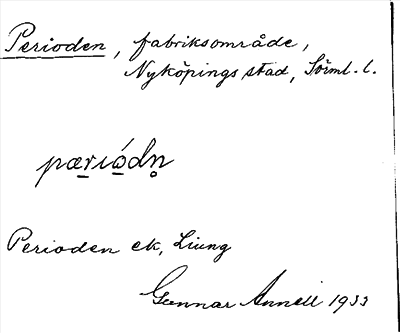 Perioden, fabriksområde,
Nyköpings stad, Sörml. l.
pæriódn̥
Perioden ek, Liung
Gunnar Annell 1933